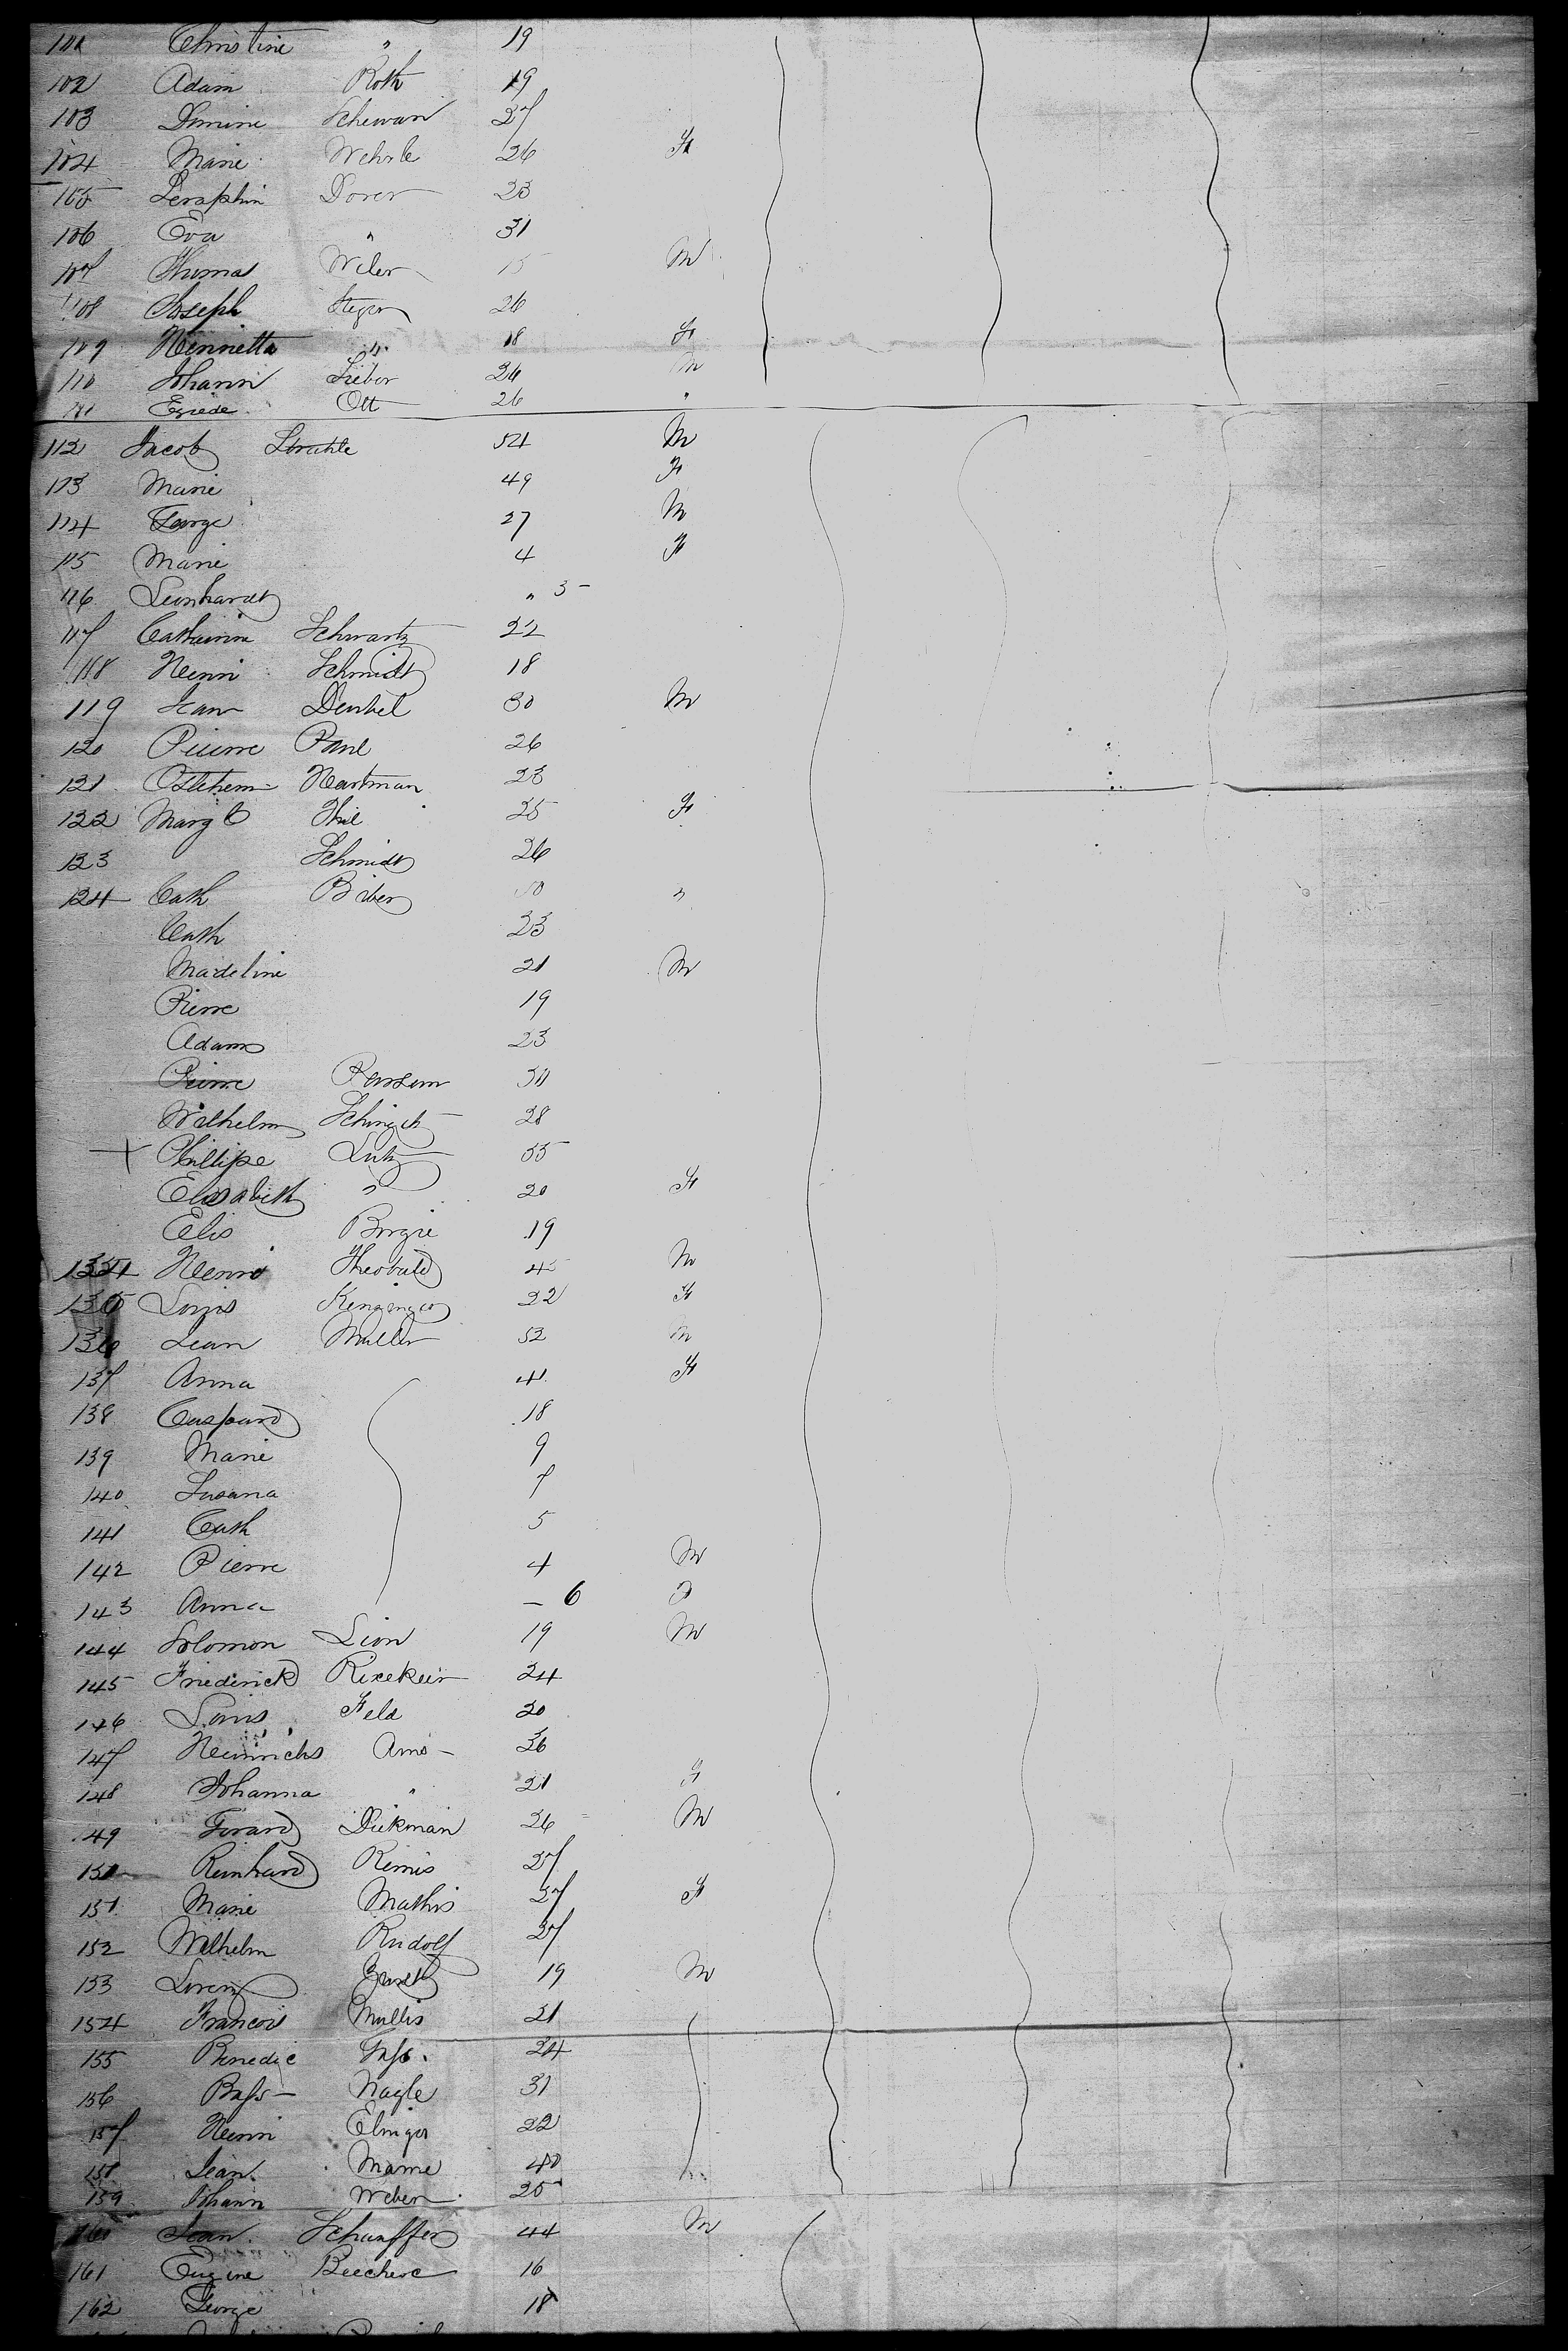 101 Christine " 19
102 Adam Roth 19
103 Schewan 27
104 Marie Wehrle 26 F
105 Seraphin Dorer 23
106 Eva " 31
107 Thomas Weler 15 M
108 Joseph Steger 26
109 Henrietta " 18 F
110 Johann Lieber 26 M
111 Ott 26 "
112 Jacob 54 M
113 Marie 49 F
114 George 27 M
115 Marie 4 F
116 Leonhardt " 3 -
117 Catharine Schwartz 22
118 Henri Schmidt 18
119 Jean Deubel 30 M
120 Pierre Paul 26
121 Hartman 23
122 Marg C 25 F
123 Schmidt 26
124 Cath Biber 50 "
Cath 23
Madeline 21 M
Pierre 19
Adam 23
Pierre 30
Wilhelm 28
+ Phillipe Lutz 35
Elisabeth " 20 F
Elis 19
134 Henri Theobald 45 M
135 Louis 22 F
136 Jean Muller 52 M
137 Anna 41 F
138 Caspard 18
139 Marie 9
140 Susana 7
141 Cath 5
142 Pierre 4 M
143 Anna - 6 F
144 Solomon Lion 19 M
145 Friederick 24
146 Louis Feld 20
147 Heinrichs Ams - 36
148 Johanna " 21 F
149 Diekman 26 M
150 Reinhard Remis 27
151 Marie Mathis 27 F
152 Wilhelm Rudolf 27
153 Lorenz 19 M
154 Francois Mullis 21
155 Benedic 24
156 Nagle 31
157 Henri Elmiger 22
158 Jean Marne 40
159 Johann Weber 25
160 Jean Schauffer 44 M
161 Eugine 16
162 George 18